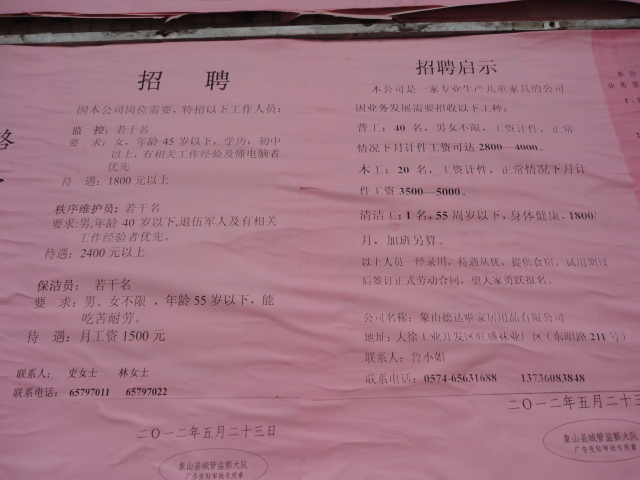 招 聘
因本公司岗位需要，特招以下工作人员：
监 控：若干名
要 求：女，年龄 45 岁以下，学历：初中
以上，有相关工作经验及懂电脑者
优先
待 遇：1800 元以上
秩序维护员：若干名
要求:男,年龄 40 岁以下,退伍军人及有相关
工作经验者优先。
待遇：2400 元以上
保洁员：若干名
要 求：男、女不限，年龄 55 岁以下，能
吃苦耐劳。
待 遇：月工资 1500 元
联系人： 史女士 林女士
联系电话： 65797011 65797022
二〇一二年五月二十三日
象山县城管监察大队
广告张贴审批专用章
招聘启示
本公司是一家专业生产儿童家具的公司
因业务发展需要招收以下工种：
普工：40 名，男女不限，工资计件，正常
情况下月计件工资可达 2800—4000。
木工：20 名，工资计件，正常情况下月计
件工资 3500—5000。
清洁工：1 名，55 周岁以下，身体健康，1800/
月，加班另算。
以上人员一经录用，待遇从优，提供食宿，试用期过
后签订正式劳动合同，望人家勇跃报名。
公司名称：象山德达 家居用品有限公司
地址：大徐工业开发区旺盛林业厂区（东昭路 211 号）
联系人：鲁小姐
联系电话：0574-65631688 13736083848
二〇一二年五月二十三
象山县城管监察大队
广告张贴审批专用章
本公
业务量